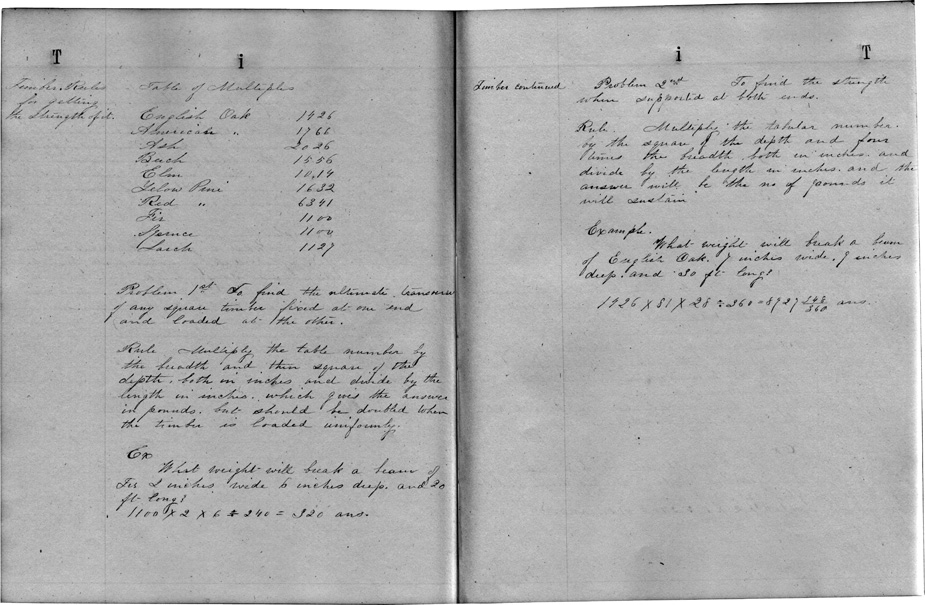 T
i
Timber Rules
for getting
the strength of it.
Table of Multiples
English Oak 1426
American " 1766
Ash 2026
Beech 1556
Elm 10,14
Yelow Pine 1632
Red " 6341
Fir 1100
Spruce 1100
Larch 1127
Problem 1st To find the ultimate transverse
of any square timber fixed at one end
and loaded at the other.
Rule Multiply the table number by
the breadth and then square of the
depth, both in inches and divide by the
length in inches, which gives the answer
in pounds, but should be doubled when
the timber is loaded uniformly.
Ex
What weight will break a beam of
Fir 2 inches wide 6 inches deep, and 20
ft long?
1100 X 2 X 6 ÷ 240 = 320 ans.
i
T
Timber continued
Problem 2nd To find the strength
when supported at both ends.
Rule. Multiply the tabular number.
by the square of the depth and four
times the breadth both in inches, and
divide by the length in inches, and the
answer will be the no of pounds it
will sustain
Example.
What weight will break a beam
of English Oak. 7 inches wide, 9 inches
deep, and 30 ft long?
1426 X 81 X 28 ÷ 360 = 8927 348/360 ans.